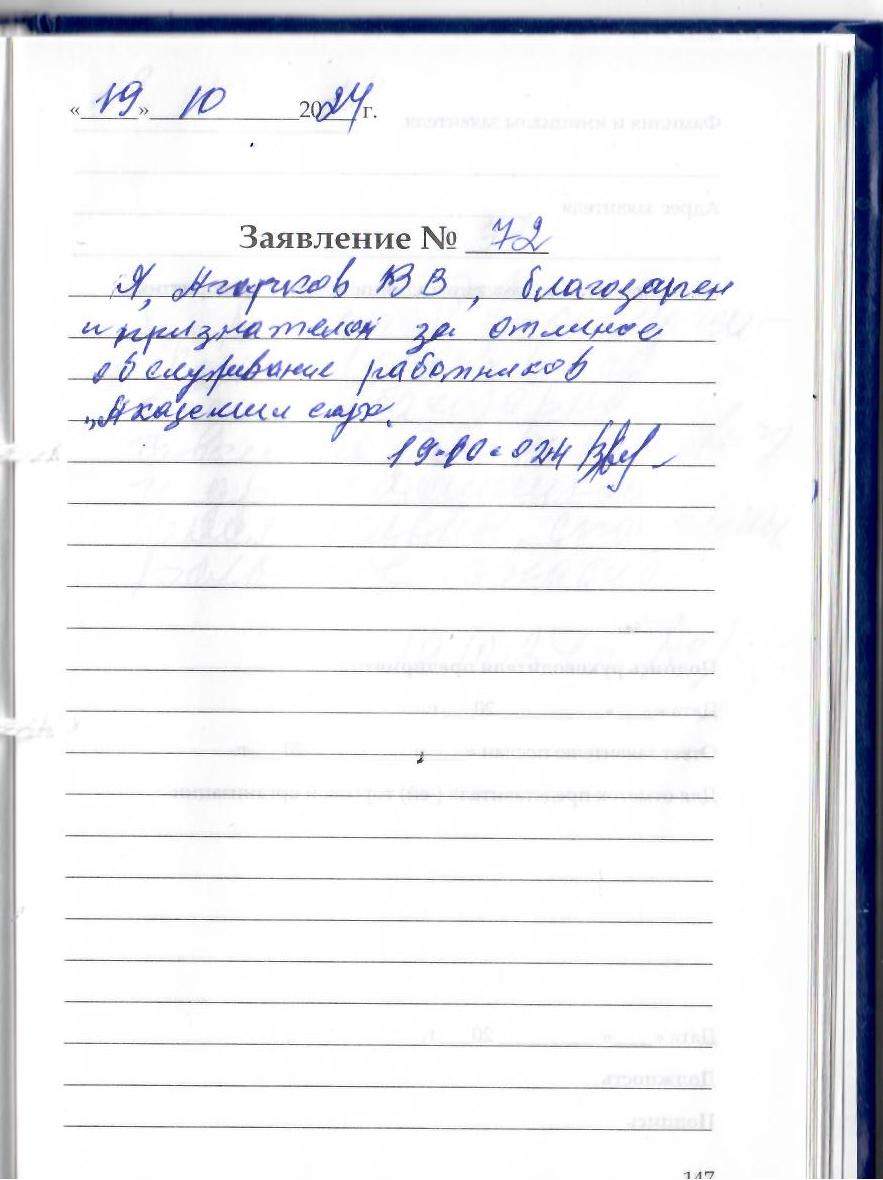 « 19 » 10 2024 г.
Заявление № 72
Я, В В, благодарен
и признателен за отличное
обслуживание работников
„Академии слух.
19.10.024
147